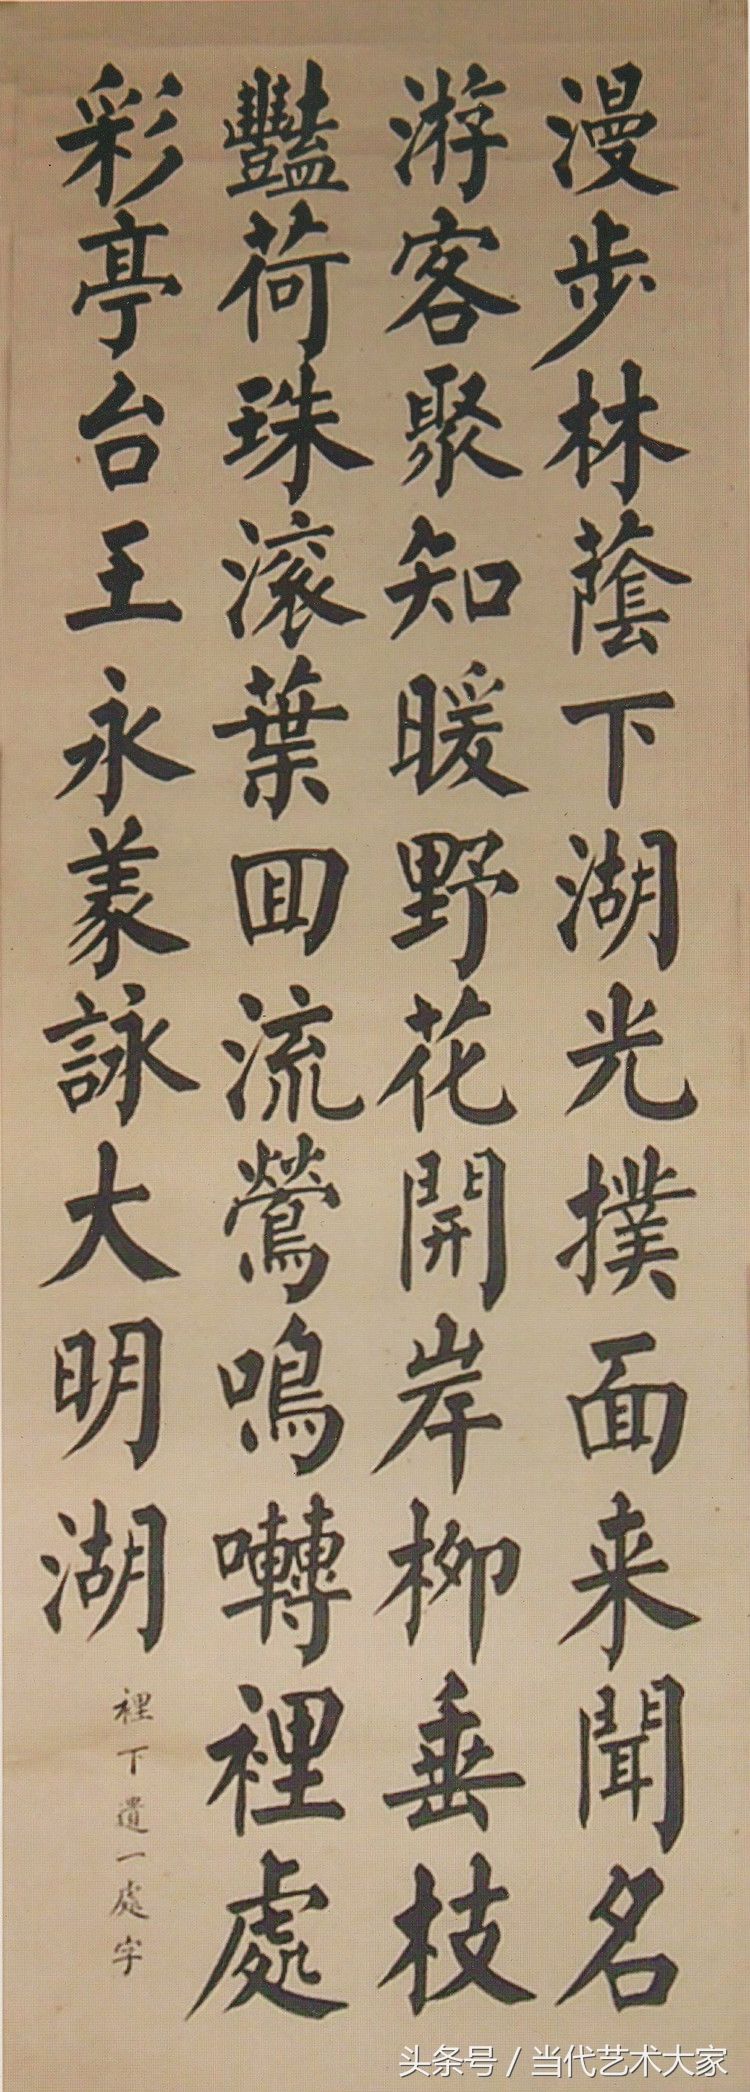 漫步林蔭下湖光撲面来聞名
游客聚知暖野花開岸柳垂枝
豔荷珠滚葉囬流鶯鳴囀裡處
彩亭台王永羕詠大明湖
裡下遺一處字
头条号 / 当代艺术大家